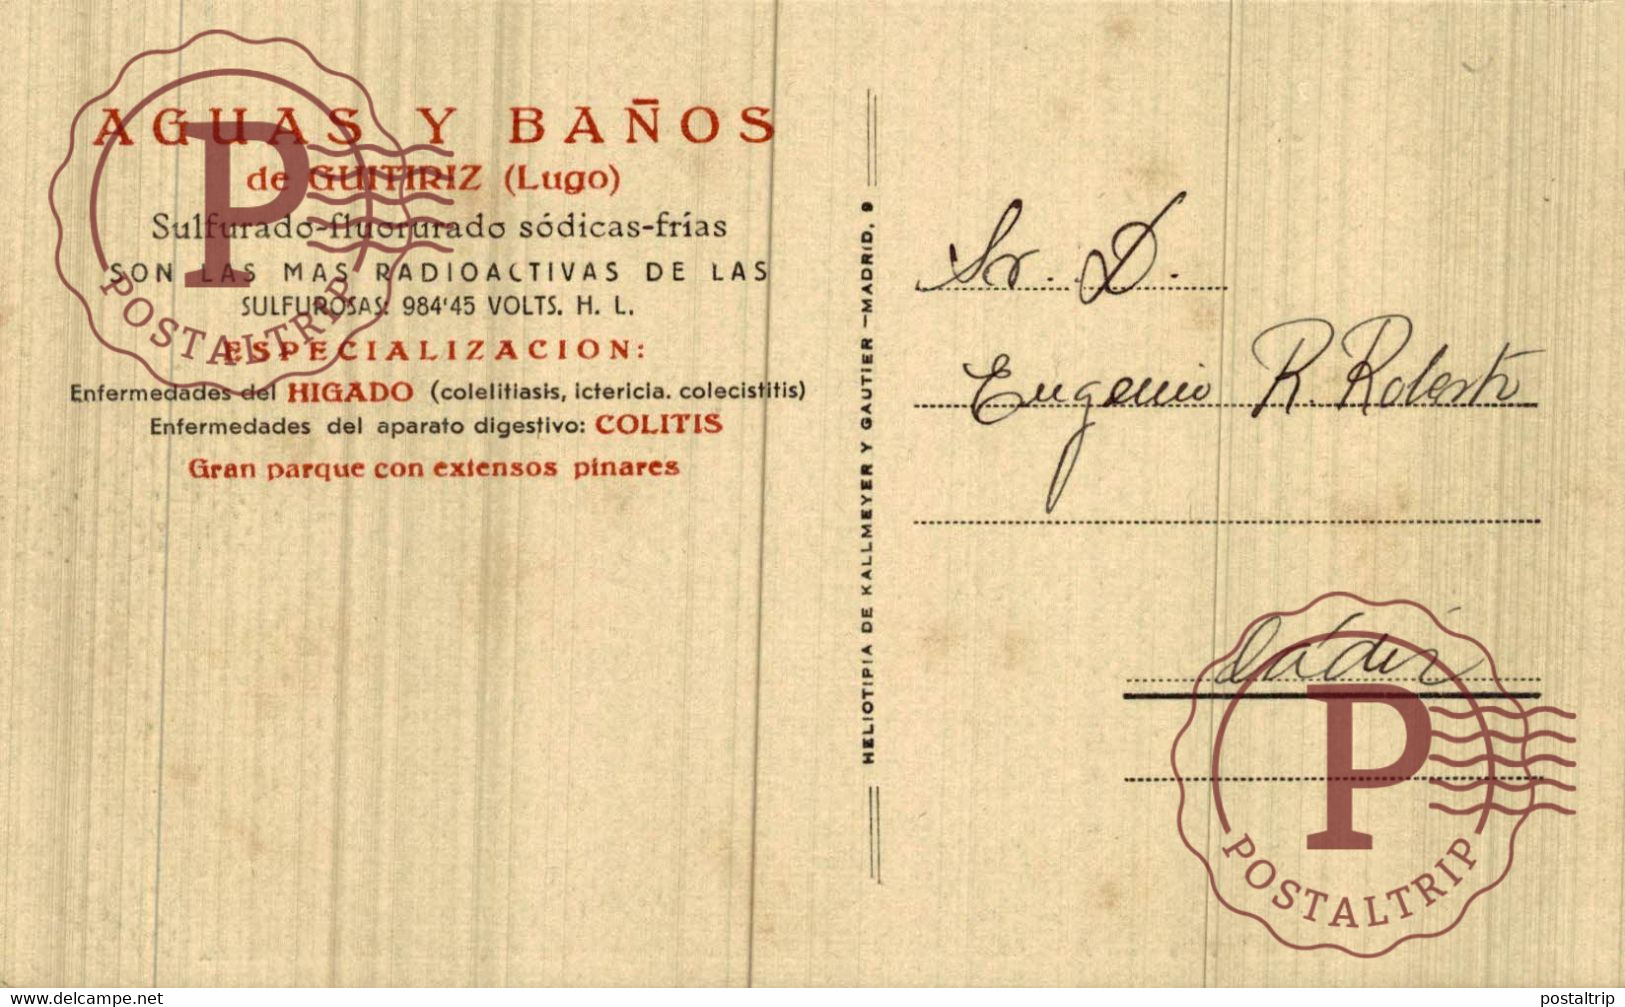 AGUAS Y BAÑOS
de GUITIRIZ (Lugo)
Sulfurado-fluorurado sódicas-frías
SON LAS MAS RADIOACTIVAS DE LAS
SULFUROSAS: 984'45 VOLTS. H. L.
ESPECIALIZACION:
Enfermedades del HIGADO (colelitiasis, ictericia. colecistitis)
Enfermedades del aparato digestivo: COLITIS
Gran parque con extensos pinares
HELIOTIPIA DE KALLMEYER Y GAUTIER -MADRID, 9
Sr. D.
Eugenio R. Rolesto
Cádiz
P
POSTALTRIP
P
POSTALTRIP
www.delcampe.net
postaltrip